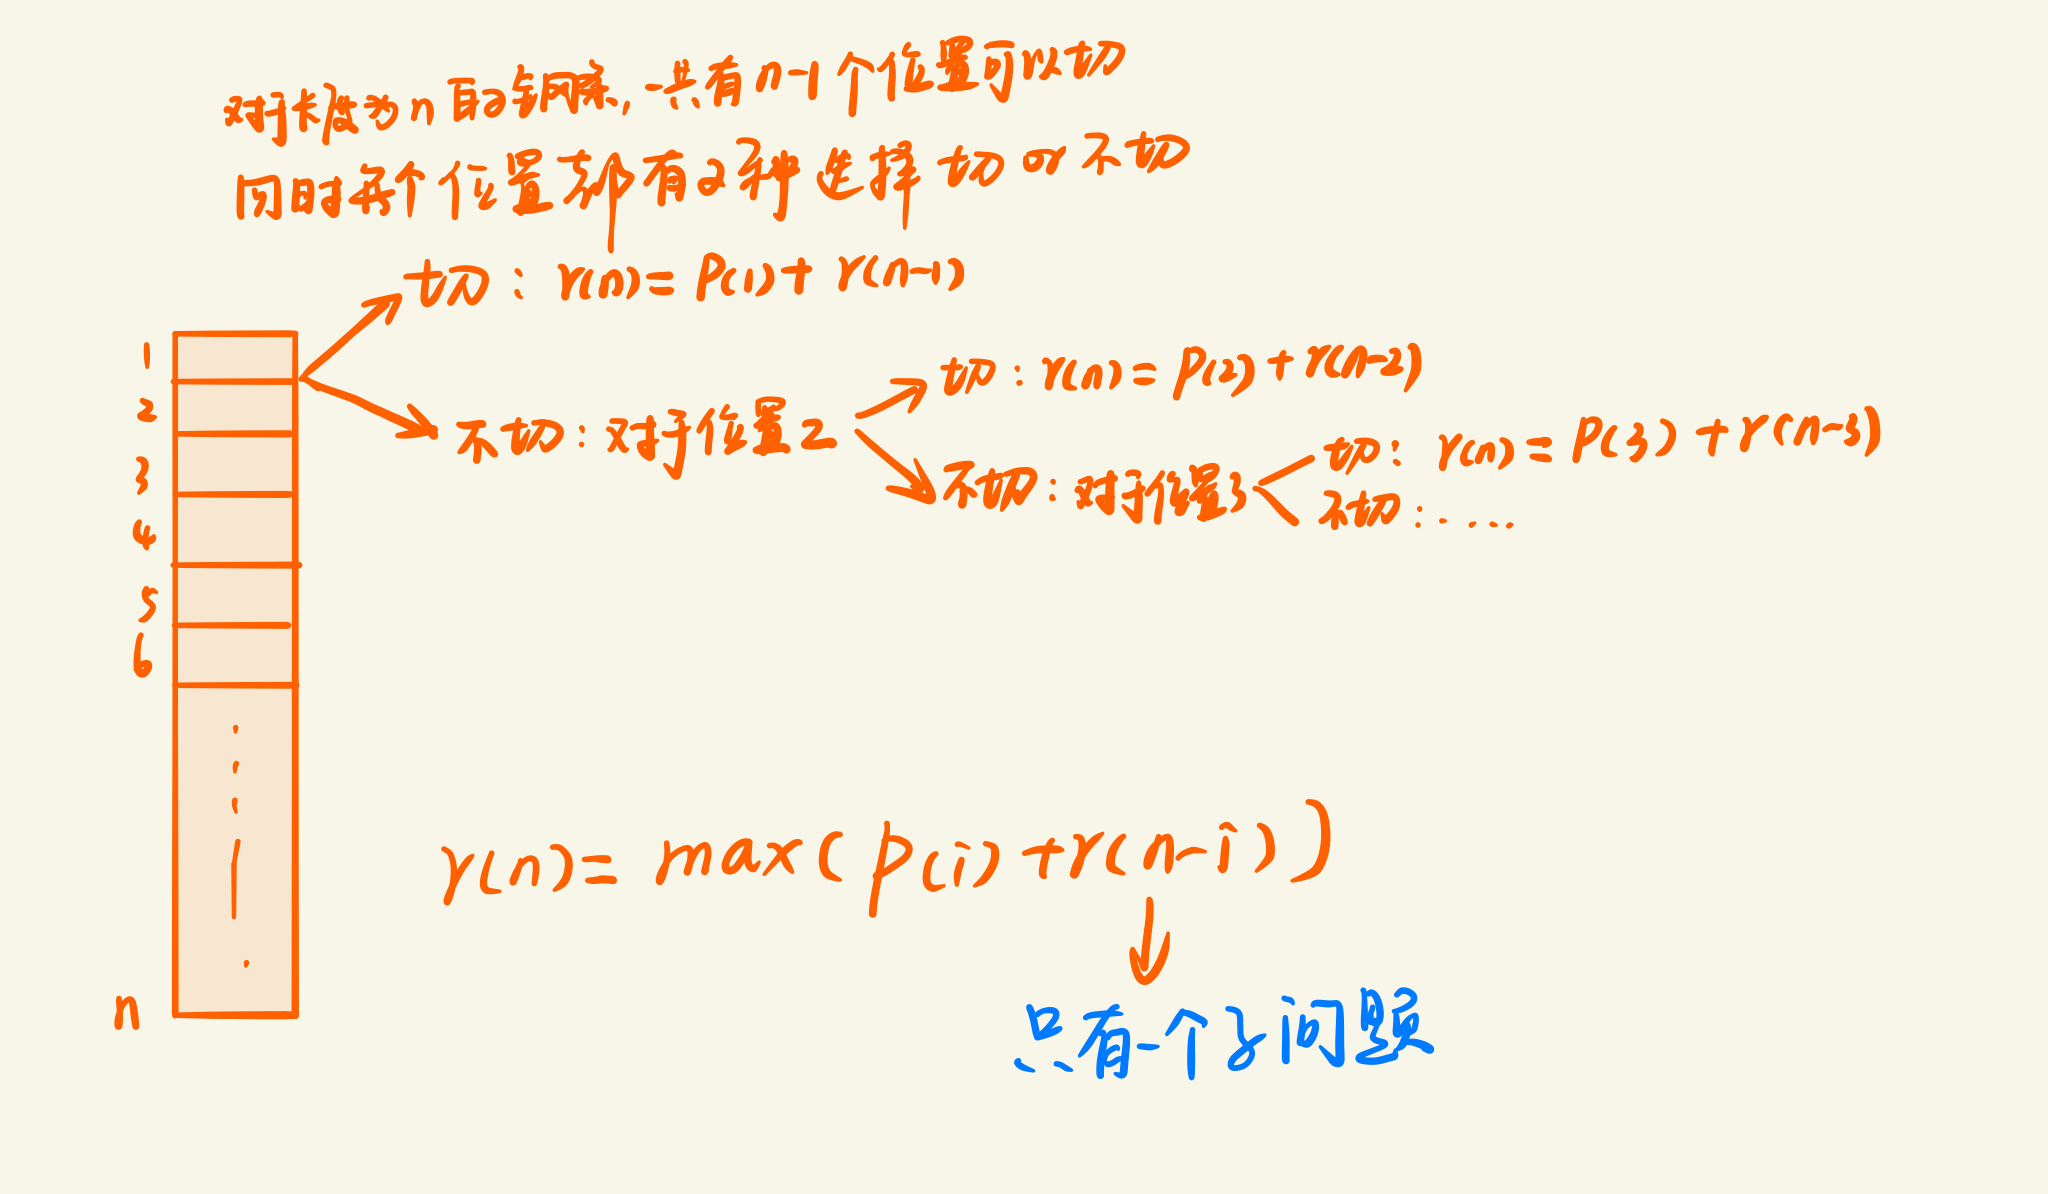 对于长度为n的钢条，一共有n-1个位置可以切
同时每个位置都有2种选择 切 or 不切
切：r(n)= P(1)+ r(n-1)
1
2
3
4
5
6
n
不切：对于位置2
切：r(n)= P(2)+r(n-2)
不切：对于位置3
切：r(n)= P(3)+r(n-3)
不切：.....
r(n)= max(p(i)+r(n-i))
只有一个子问题